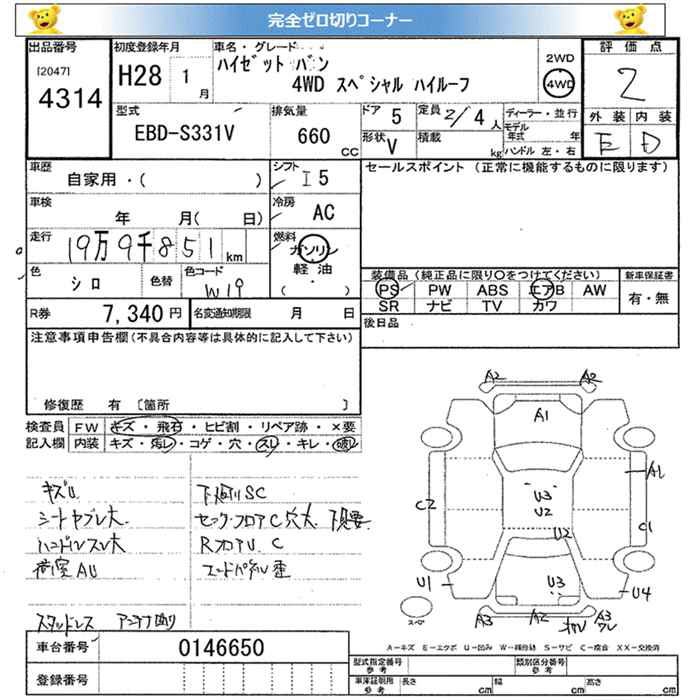 完全ゼロ切りコーナー
出品番号 初度登録年月 車名・グレード 2WD 評価点
[2047] 4314 H28 1月 ハイゼット バン 4WD スペシャル ハイルーフ 4WD 2
型式 排気量 ドア 5 定員 2/4人 ディーラー・並行 外装 内装
EBD-S331V 660cc 形状 V 積載 kg モデル年式 年 ハンドル 左・右 E D
車歴 シフト セールスポイント (正常に機能するものに限ります)
自家用・( ) I5
車検 年 月( 日) 冷房 AC
走行 19万9千851km 燃料 ガソリン
軽油
( ・ )
色 シロ 色替 色コード W19
装備品 (純正品に限り○をつけてください) 新車保証書
PS PW ABS エアB AW 有・無
SR ナビ TV カワ
R券 7,340円 名変通知期限 月 日 後日品
注意事項申告欄(不具合内容等は具体的に記入して下さい)
修復歴 有 [箇所 ]
検査員 FW キズ・飛石・ヒビ割・リペア跡・×要
記入欄 内装 キズ・汚レ・コゲ・穴・スレ・キレ・破レ
キズU 下廻りSC
シートヤブレ大 セック・フロアC穴大 下見要
ハンドルスレ大 RフロアU、C
荷室AU エンドパネル歪
スタッドレス アンテナ曲り
A2 A2
A1
A1
U3
U2
C2 C1
U2
U1 U3 U4
スペア A3 A2 A3
A-キズ E-エクボ U-凹み W-補修跡 S-サビ C-腐食 XX-交換済
車台番号 0146650
型式指定番号 参考 類別区分番号 参考
登録番号 車庫証明用 参考 長さ cm 幅 cm 高さ cm